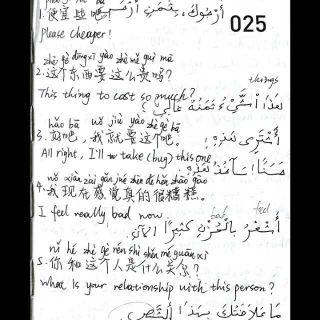 025
1. 便宜些吧! أرجوك، بثمن أرخص
please cheaper!
zhè gè dōng xī yào zhè mē guì mā
2. 这个东西要这么贵吗?
things
This thing to cost so much?
لهذا الشيء ثمنه غالي؟
hǎo bā wǒ jiù yào zhè gè bā
3. 好吧, 我就要这个吧。
أشتري هذه
All right, I'll take (buy) this one
حسناً سآخذ هذه
wǒ xiàn zài gǎn jué zhēn dē hěn zāo gāo
4. 我现在感觉真的很糟糕。
I feel really bad now.
bad feel
أشعر بالحزن كثيراً الآن
nǐ hé zhè gè rén shì shén mē guān xì
5. 你和这个人是什么关系?
What is your relationship with this person?
ما علاقتك بهذا الشخص